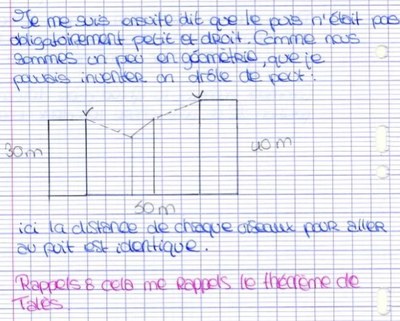 Je me suis ensuite dit que le puis n'était pas
obligatoirement petit et droit. Comme nous
sommes un peu en géométrie, que je
pouvais inventer un drôle de peut :
30m
40m
50m
ici la distance de chaque oiseaux pour aller
au puit est identique.
Rappels : cela me rappels le théorème de
Tales